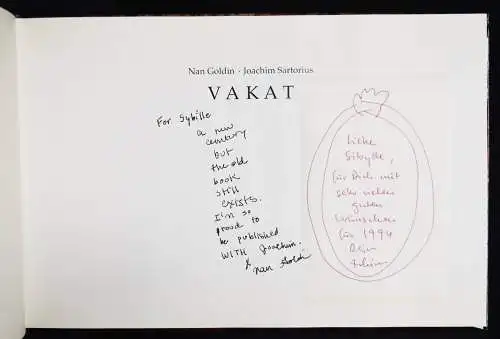 Nan Goldin · Joachim Sartorius
VAKAT
For Sybille
a new
century
but
the old
book
still
exists.
I'm so
proud to
be published
WITH Joachim.
Nan Goldin
Liebe
Sibylle,
für Dich mit
sehr vielen
guten
Wünschen
für 1994
Dein